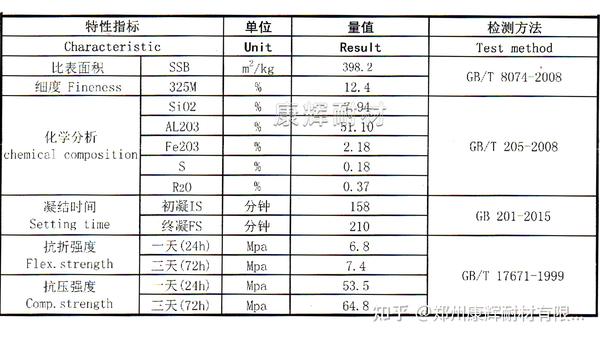 特性指标 单位 量值 检测方法
Characteristic Unit Result Test method
比表面积 SSB m²/kg 398.2 GB/T 8074-2008
细度 Fineness 325M % 12.4
化学分析 chemical composition SiO2 % .94 GB/T 205-2008
AL2O3 % 51.10
Fe2O3 % 2.18
S % 0.18
R2O % 0.37
凝结时间 Setting time 初凝IS 分钟 158 GB 201-2015
终凝FS 分钟 210
抗折强度 Flex.strength 一天(24h) Mpa 6.8 GB/T 17671-1999
三天(72h) Mpa 7.4
抗压强度 Comp.strength 一天(24h) Mpa 53.5
三天(72h) Mpa 64.8
康辉耐材
知乎 @郑州康辉耐材有限...